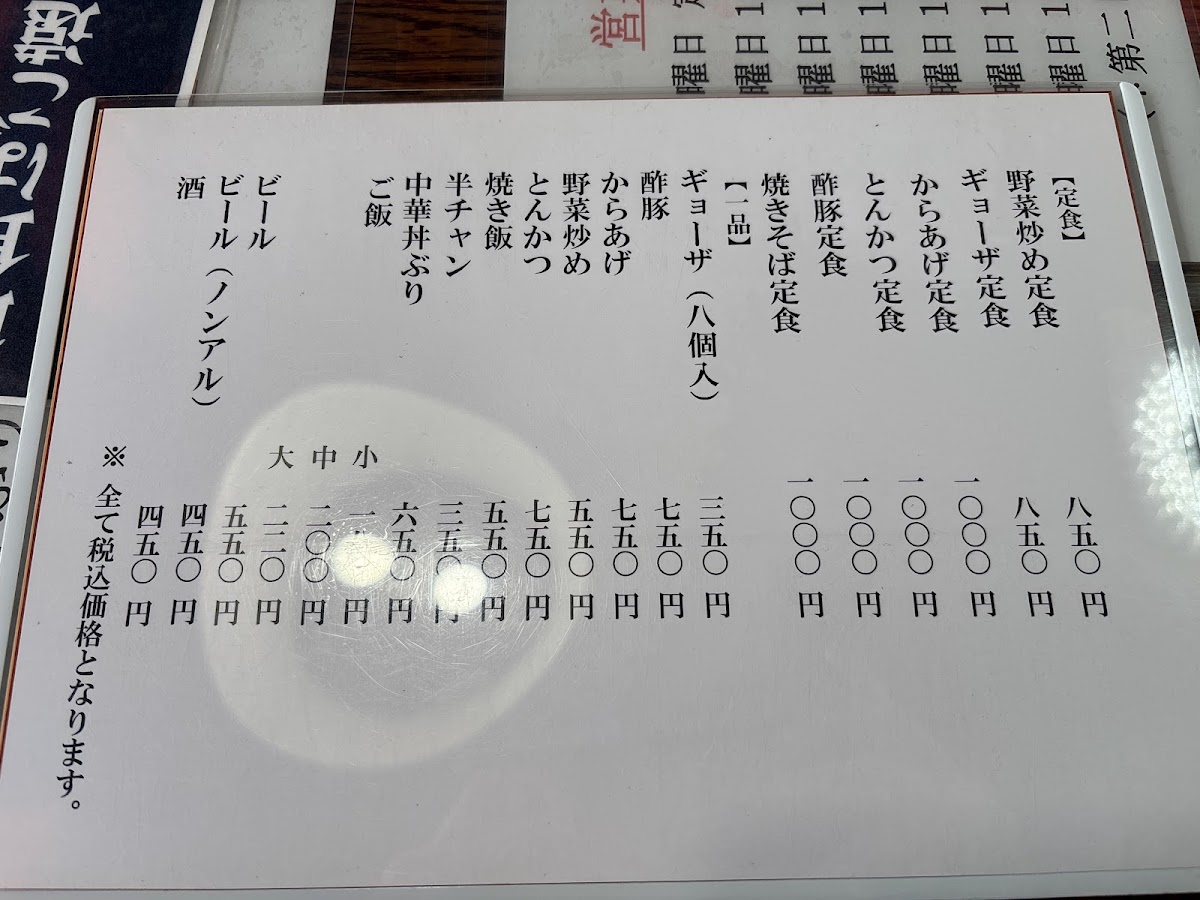 【定食】
野菜炒め定食 八五〇円
ギョーザ定食 八五〇円
からあげ定食 一〇〇〇円
とんかつ定食 一〇〇〇円
酢豚定食 一〇〇〇円
焼きそば定食 一〇〇〇円
【一品】
ギョーザ(八個入) 三五〇円
酢豚 七五〇円
からあげ 七五〇円
野菜炒め 五五〇円
とんかつ 七五〇円
焼き飯 五五〇円
半チャン 三五〇円
中華丼ぶり 六五〇円
ご飯 小 円
中 二〇〇円
大 二二〇円
ビール 五五〇円
ビール(ノンアル) 四五〇円
酒 四五〇円
※ 全て税込価格となります。